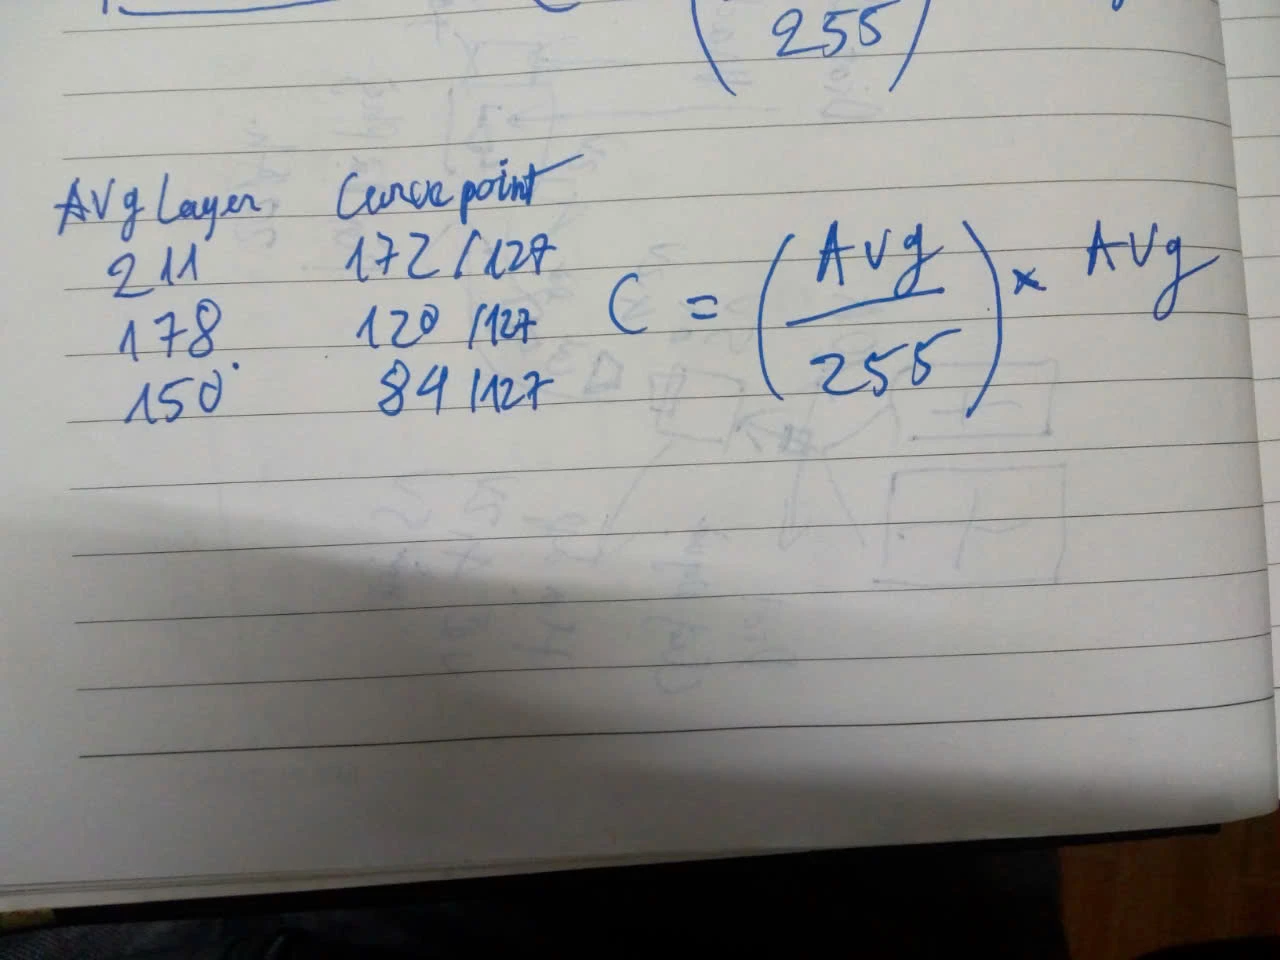 255
Avg Layer Curve point
211 172/127
178 120/127
150 84/127
C = (Avg/255) × Avg